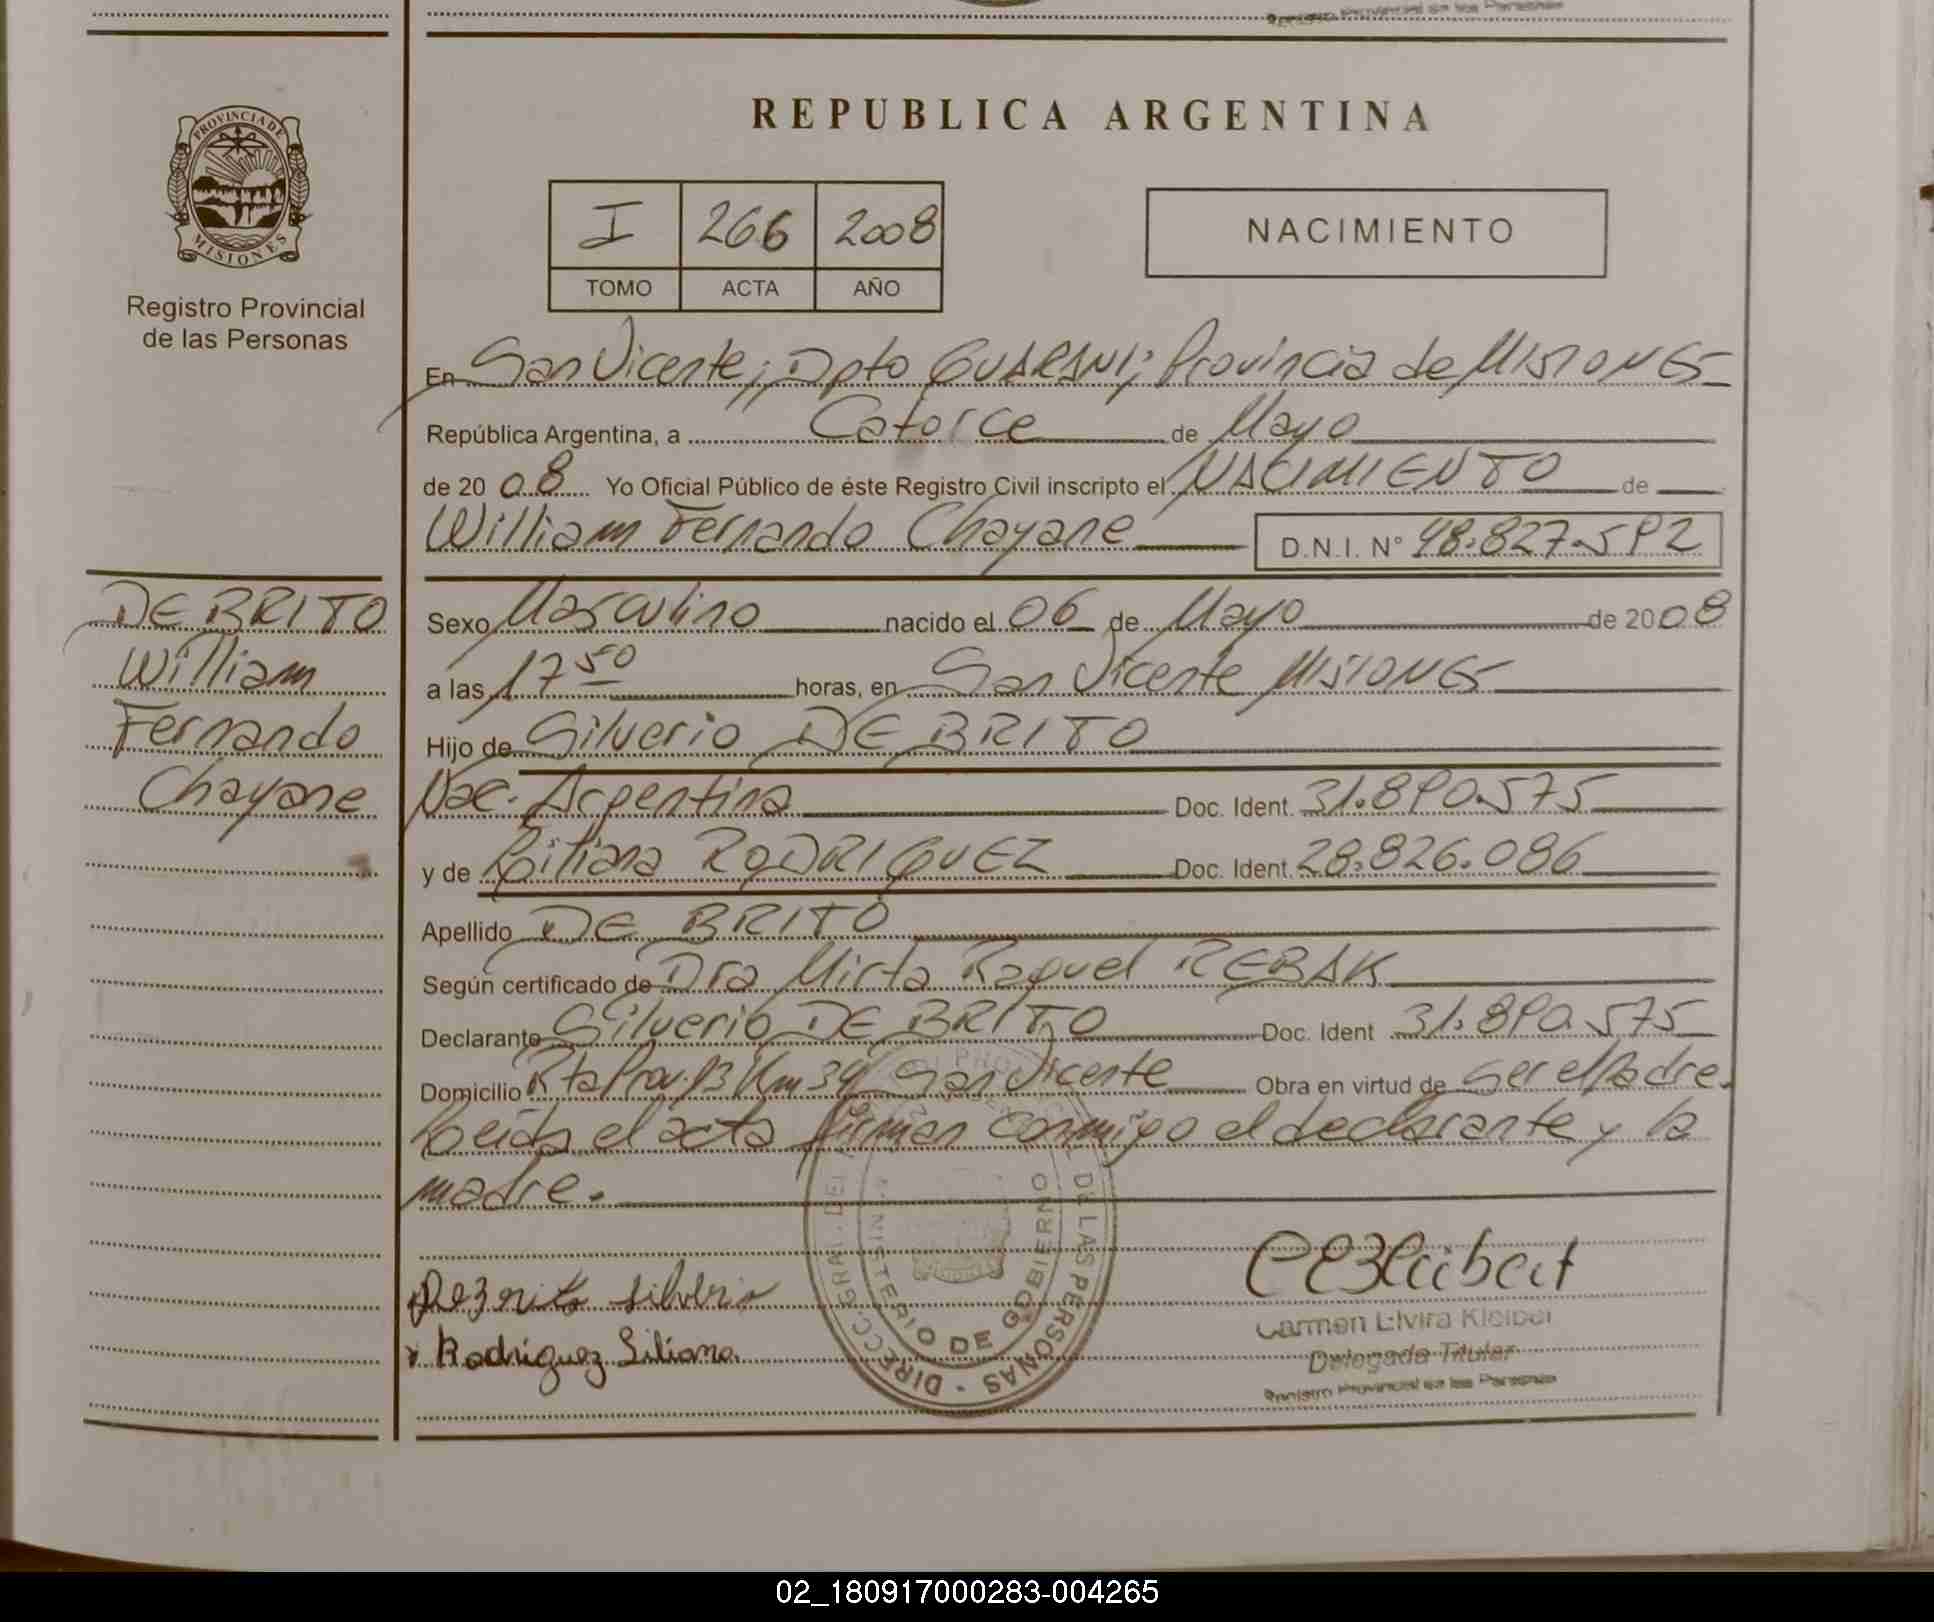 Registro Provincial de las Personas
PROVINCIA DE
MISIONES
Registro Provincial
de las Personas
REPUBLICA ARGENTINA
I 266 2008
TOMO ACTA AÑO
NACIMIENTO
En San Vicente; Dpto GUARANI; Provincia de MISIONES
República Argentina, a Catorce de Mayo
de 20 08 Yo Oficial Público de éste Registro Civil inscripto el NACIMIENTO de
William Fernando Chayane D.N.I. N° 48.827.592
DE BRITO
William
Fernando
Chayane
Sexo Masculino nacido el 06 de Mayo de 2008
a las 17 50 horas, en San Vicente MISIONES
Hijo de Silverio DE BRITO
Nac. Argentina Doc. Ident. 31.890.575
y de Liliana RODRIGUEZ Doc. Ident. 28.826.086
Apellido DE BRITO
Según certificado de Dra Mirta Raquel REBAK
Declarante Silverio DE BRITO Doc. Ident 31.890.575
Domicilio Rta Prov. 13 Km 34 San Vicente Obra en virtud de Ser el Padre.
Leida el acta firman conmigo el declarante y la
madre.
DIRECC. GRAL. DEL DE LAS PERSONAS
MINISTERIO DE GOBIERNO
De Brito Silverio
Rodriguez Liliana
Carmen Elvira Kleiber
Delegada Titular
Registro Provincial de las Personas
02_180917000283-004265